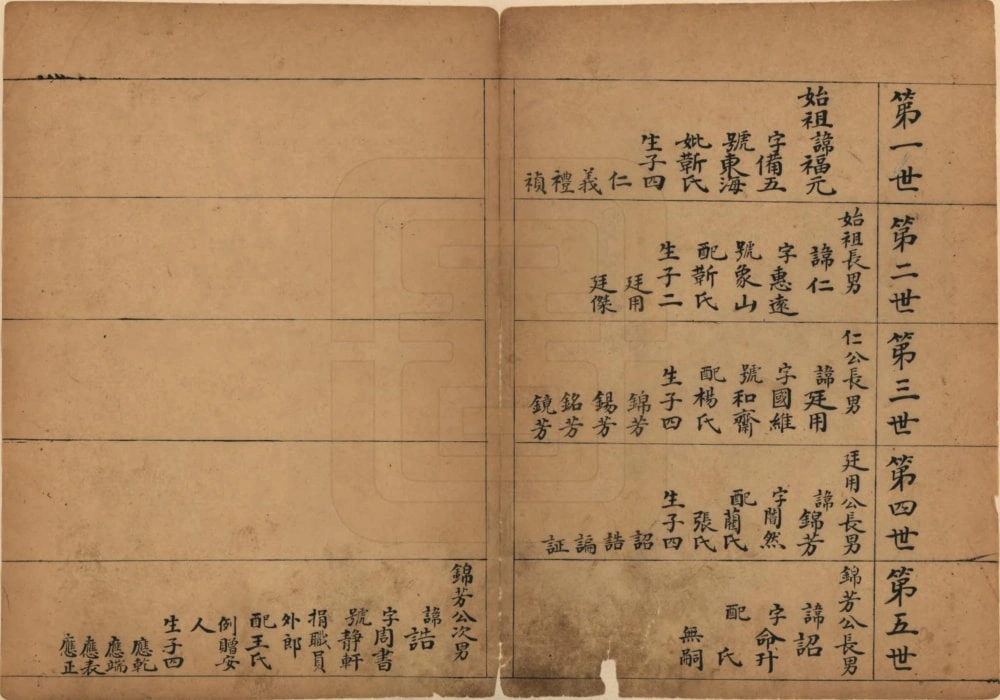 第一世
始祖諱福元
字備五
號東海
妣靳氏
生子四
仁
義
禮
禎
第二世
始祖長男
諱仁
字惠遠
號象山
配靳氏
生子二
廷用
廷傑
第三世
仁公長男
諱廷用
字國維
號和齋
配楊氏
生子四
錦芳
錫芳
銘芳
鏡芳
第四世
廷用公長男
諱錦芳
字闇然
配藺氏
張氏
生子四
詔
誥
諞
証
第五世
錦芳公長男
諱詔
字命升
配 氏
無嗣
錦芳公次男
諱誥
字周書
號靜軒
捐職員
外郎
配王氏
例贈安
人
生子四
應乾
應端
應表
應正